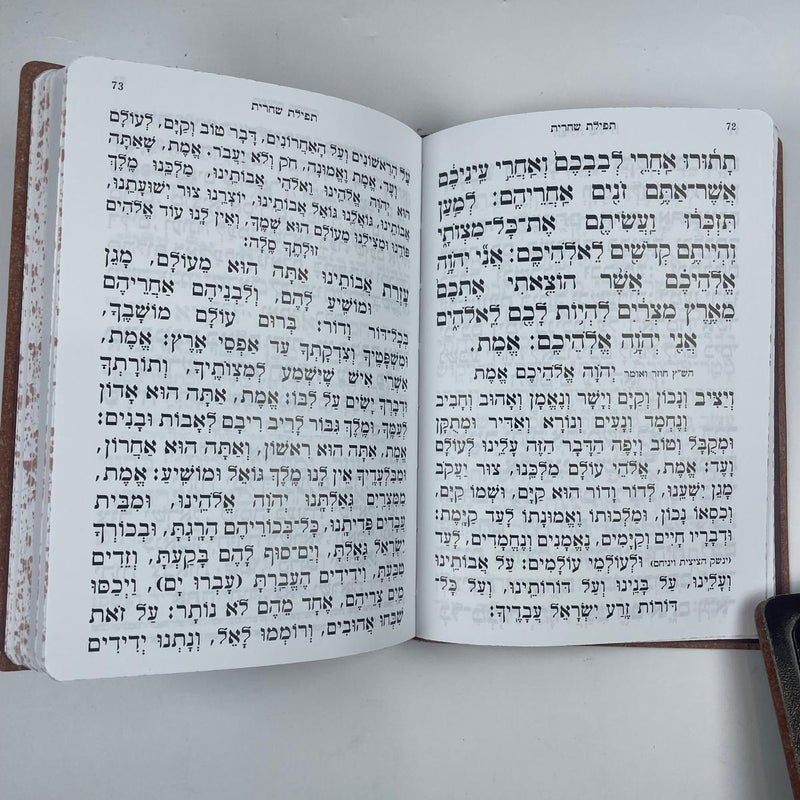 72
תפילת שחרית
תָתֽוּרוּ אַחֲרֵי לְבַבְכֶם וְאַחֲרֵי עֵֽינֵיכֶם
אֲשֶׁר־אַתֶּם זֹנִים אַחֲרֵיהֶֽם: לְמַעַן
תִּזְכְּרוּ וַעֲשִׂיתֶם אֶת־כָּל־מִצְוֹתָי
וִהְיִיתֶם קְדֹשִׁים לֵאלֹהֵיכֶֽם: אֲנִי יְהֹוָה
אֱלֹהֵיכֶם אֲשֶׁר הוֹצֵאתִי אֶתְכֶם
מֵאֶרֶץ מִצְרַיִם לִהְיוֹת לָכֶם לֵאלֹהִים
אֲנִי יְהֹוָה אֱלֹהֵיכֶֽם: אֱמֶת.
הש״ץ חוזר ואומר יְהֹוָה אֱלֹהֵיכֶם אֱמֶת
וְיַצִּיב וְנָכוֹן וְקַיָּם וְיָשָׁר וְנֶאֱמָן וְאָהוּב וְחָבִיב
וְנֶחְמָד וְנָעִים וְנוֹרָא וְאַדִּיר וּמְתֻקָּן
וּמְקֻבָּל וְטוֹב וְיָפֶה הַדָּבָר הַזֶּה עָלֵינוּ לְעוֹלָם
וָעֶד: אֱמֶת, אֱלֹהֵי עוֹלָם מַלְכֵּנוּ, צוּר יַעֲקֹב
מָגֵן יִשְׁעֵנוּ, לְדוֹר וָדוֹר הוּא קַיָּם, וּשְׁמוֹ קַיָּם,
וְכִסְאוֹ נָכוֹן, וּמַלְכוּתוֹ וֶאֱמוּנָתוֹ לָעַד קַיֶּמֶת:
וּדְבָרָיו חָיִים וְקַיָּמִים, נֶאֱמָנִים וְנֶחֱמָדִים, לָעַד
(ינשק הציצית ויניחם) וּלְעוֹלְמֵי עוֹלָמִים: עַל אֲבוֹתֵינוּ
וְעָלֵינוּ, עַל בָּנֵינוּ וְעַל דּוֹרוֹתֵינוּ, וְעַל כָּל־
דּוֹרוֹת זֶרַע יִשְׂרָאֵל עֲבָדֶיךָ:
73
תפילת שחרית
עַל הָרִאשׁוֹנִים וְעַל הָאַחֲרוֹנִים, דָּבָר טוֹב וְקַיָּם, לְעוֹלָם
וָעֶד, אֱמֶת וֶאֱמוּנָה, חֹק וְלֹא יַעֲבֹר. אֱמֶת, שָׁאַתָּה
הוּא יְהֹוָה אֱלֹהֵינוּ וֵאלֹהֵי אֲבוֹתֵינוּ, מַלְכֵּנוּ מֶלֶךְ
אֲבוֹתֵינוּ, גֹּאֲלֵנוּ גּוֹאֵל אֲבוֹתֵינוּ, יוֹצְרֵנוּ צוּר יְשׁוּעָתֵנוּ,
פּוֹדֵנוּ וּמַצִּילֵנוּ מֵעוֹלָם הוּא שְׁמֶךָ, וְאֵין לָנוּ עוֹד אֱלֹהִים
זוּלָתְךָ סֶלָה:
עֶזְרַת אֲבוֹתֵינוּ אַתָּה הוּא מֵעוֹלָם, מָגֵן
וּמוֹשִׁיעַ לָהֶם, וְלִבְנֵיהֶם אַחֲרֵיהֶם
בְּכָל־דּוֹר וָדוֹר: בְּרוּם עוֹלָם מוֹשָׁבֶךָ,
וּמִשְׁפָּטֶיךָ וְצִדְקָתְךָ עַד אַפְסֵי אָרֶץ: אֱמֶת,
אַשְׁרֵי אִישׁ שֶׁיִּשְׁמַע לְמִצְוֹתֶיךָ, וְתוֹרָתְךָ
וּדְבָרְךָ יָשִׂים עַל לִבּוֹ: אֱמֶת, אַתָּה הוּא אָדוֹן
לְעַמֶּךָ, וּמֶלֶךְ גִּבּוֹר לָרִיב רִיבָם לְאָבוֹת וּבָנִים:
אֱמֶת, אַתָּה הוּא רִאשׁוֹן, וְאַתָּה הוּא אַחֲרוֹן,
וּמִבַּלְעָדֶיךָ אֵין לָנוּ מֶלֶךְ גּוֹאֵל וּמוֹשִׁיעַ: אֱמֶת,
מִמִּצְרַיִם גְּאַלְתָּנוּ יְהֹוָה אֱלֹהֵינוּ, וּמִבֵּית
עֲבָדִים פְּדִיתָנוּ, כָּל־בְּכוֹרֵיהֶם הָרָגְתָּ, וּבְכוֹרְךָ
יִשְׂרָאֵל גָּאָלְתָּ, וְיַם־סוּף לָהֶם בָּקַעְתָּ, וְזֵדִים
טִבַּעְתָּ, וִידִידִים הֶעֱבַרְתָּ (עָבְרוּ יָם), וַיְכַסּוּ
מַיִם צָרֵיהֶם, אֶחָד מֵהֶם לֹא נוֹתָר: עַל זֹאת
שִׁבְּחוּ אֲהוּבִים, וְרוֹמְמוּ לָאֵל, וְנָתְנוּ יְדִידִים